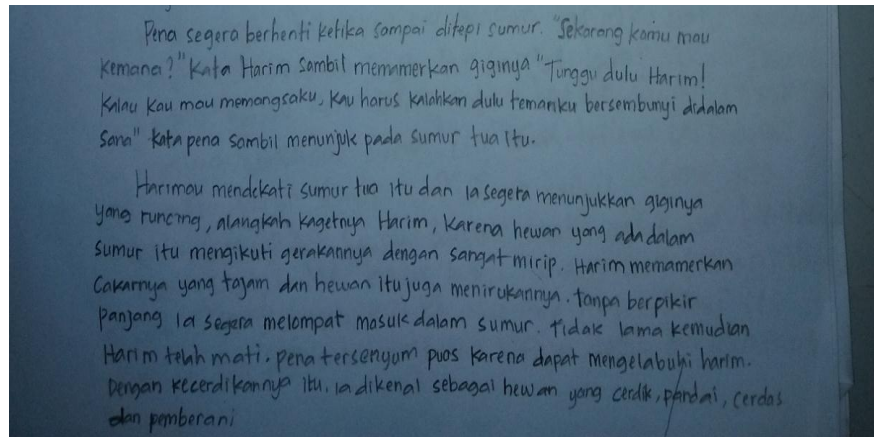 Pena segera berhenti ketika sampai ditepi sumur. "Sekarang kamu mau
kemana?" kata Harim sambil memamerkan giginya "Tunggu dulu Harim!
Kalau kau mau memangsaku, kau harus kalahkan dulu temanku bersembunyi didalam
sana" kata pena sambil menunjuk pada sumur tua itu.
Harimau mendekati sumur tua itu dan ia segera menunjukkan giginya
yang runcing, alangkah kagetnya Harim, karena hewan yang ada dalam
sumur itu mengikuti gerakannya dengan sangat mirip. Harim memamerkan
Cakarnya yang tajam dan hewan itu juga menirukannya. tanpa berpikir
panjang ia segera melompat masuk dalam sumur. tidak lama kemudian
Harim telah mati. pena tersenyum puas karena dapat mengelabuhi harim.
Dengan kecerdikannya itu, ia dikenal sebagai hewan yang cerdik, pandai, cerdas
dan pemberani